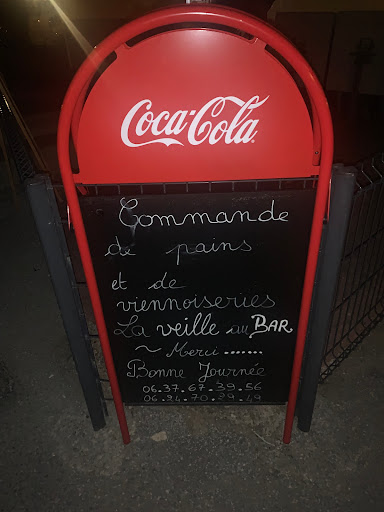 Coca-Cola
Commande
de pains
et de
viennoiseries
La veille au BAR
~ Merci .......
Bonne Journée
06.37.67.39.56
06.24.70.29.49